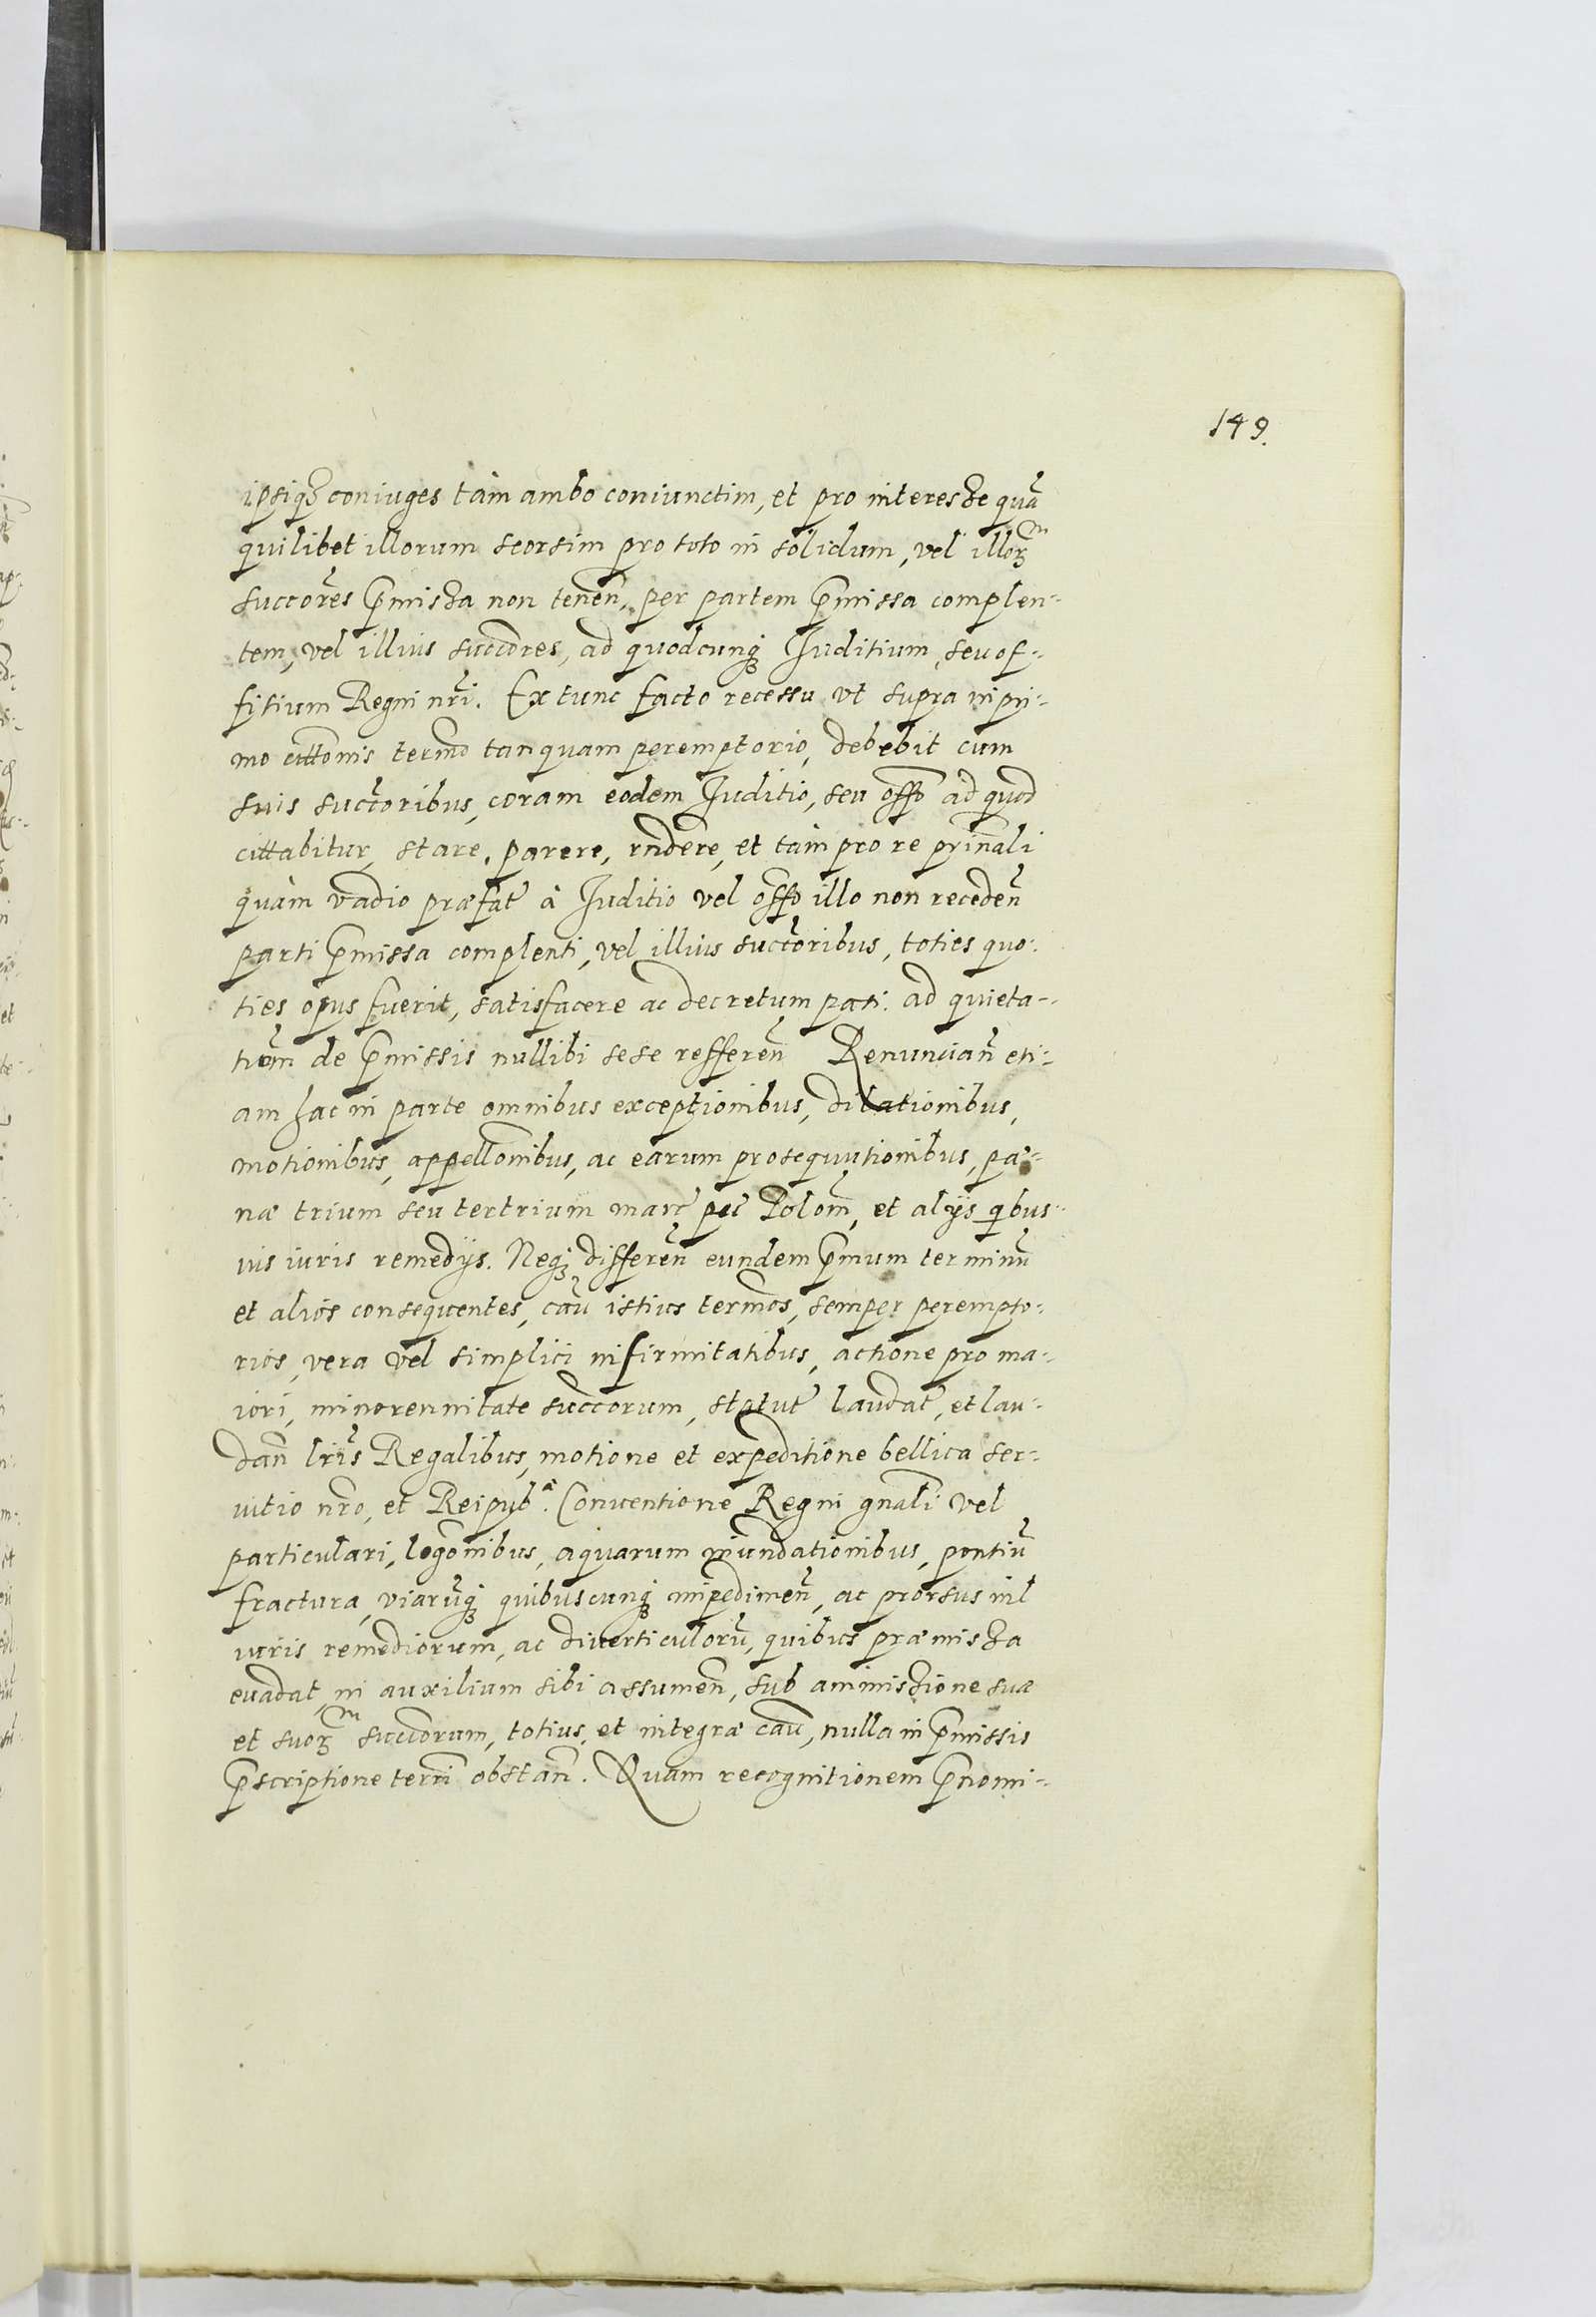 149.
ipsiqȝ coniuges tàm ambo coniunctim, et pro interesse quã
quilibet illorum seorsim pro toto in solidum, vel illorꝝ
succores p̃missa non tenen̄, per partem p̃missa complen-
tem, vel illius succores, ad quodcunqȝ Iuditium, seu of-
fitium Regni nr̃i. Ex tunc facto recessu vt supra in pri-
mo cittōnis termō tanquam peremptorio, debebit cum
suis succ̃toribus, coram eodem Iuditio, seu offō ad quod
cittabitur, stare, parere, rñdere, et tàm pro re prin̄ali
quàm vadio præfat̃ à Iuditio vel offō illo non receden̄
parti p̃missa complenti, vel illius succ̃toribus, toties quo-
ties opus fuerit, satisfacere ac decretum pati. ad quieta-
tiōm de p̃missis nullibi sese refferen̄ Renuncian̄ eti-
am hac in parte omnibus exceptionibus, dilationibus,
motionibus, appellōnibus, ac earum prosequutionibus, pæ-
næ trium seu tertrium marc̃ pec̃ Polon̄, et alijs q̃bus-
uis iuris remedijs. Neqȝ differen̄ eundem p̃mum terminũ
et alios consequentes, caũ istius termōs, semper perempto-
rios, vera vel simplici infirmitatibus, actione pro ma-
iori, minorennitate succorum, statut̃ laudat̃, et lau-
dan̄ lr̃is Regalibus, motione et expeditione bellica ser-
uitio nr̃o, et Reipubᵃ. Conuentione Regni gnāli vel
particulari, legōnibus, aquarum inundationibus, pontiũ
fractura, viarũqȝ quibuscunqȝ impedimen̄, ac prorsus nil
iuris remediorum, ac diuerticulorũ, quibus præmissa
euadat, in auxilium sibi assumen̄, sub ammissione suæ
et suorꝝ succorum, totius, et integræ caũ, nulla in p̃missis
p̃scriptione terr̄i obstan̄. Quam recognitionem p̃nomi-